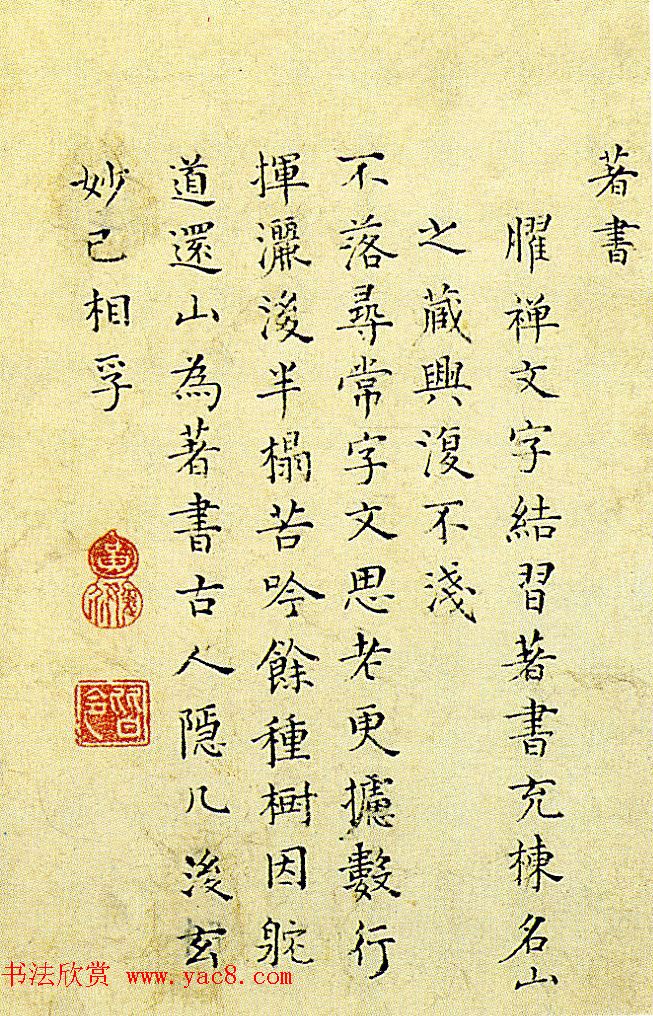 著書
臞禅文字結習著書充棟名山
之藏興復不淺
不落尋常字文思老更攄數行
揮灑後半榻苦吟餘種樹因躭
道還山為著書古人隱几後玄
妙已相孚
书法欣赏 www.yac8.com